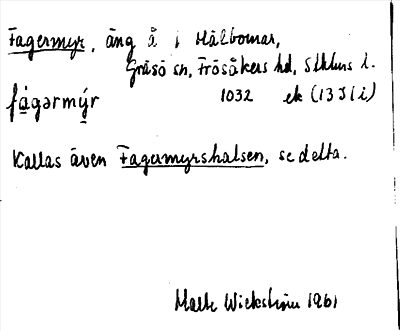 Fagermyr, äng å i Målbomar,
Gräsö sn, Frösåkers hd, Sthlms l.
fágərmýr 1032 ek (13 I 6 i)
Kallas även Fagermyrshalsen, se detta.
Malte Wickström 1961